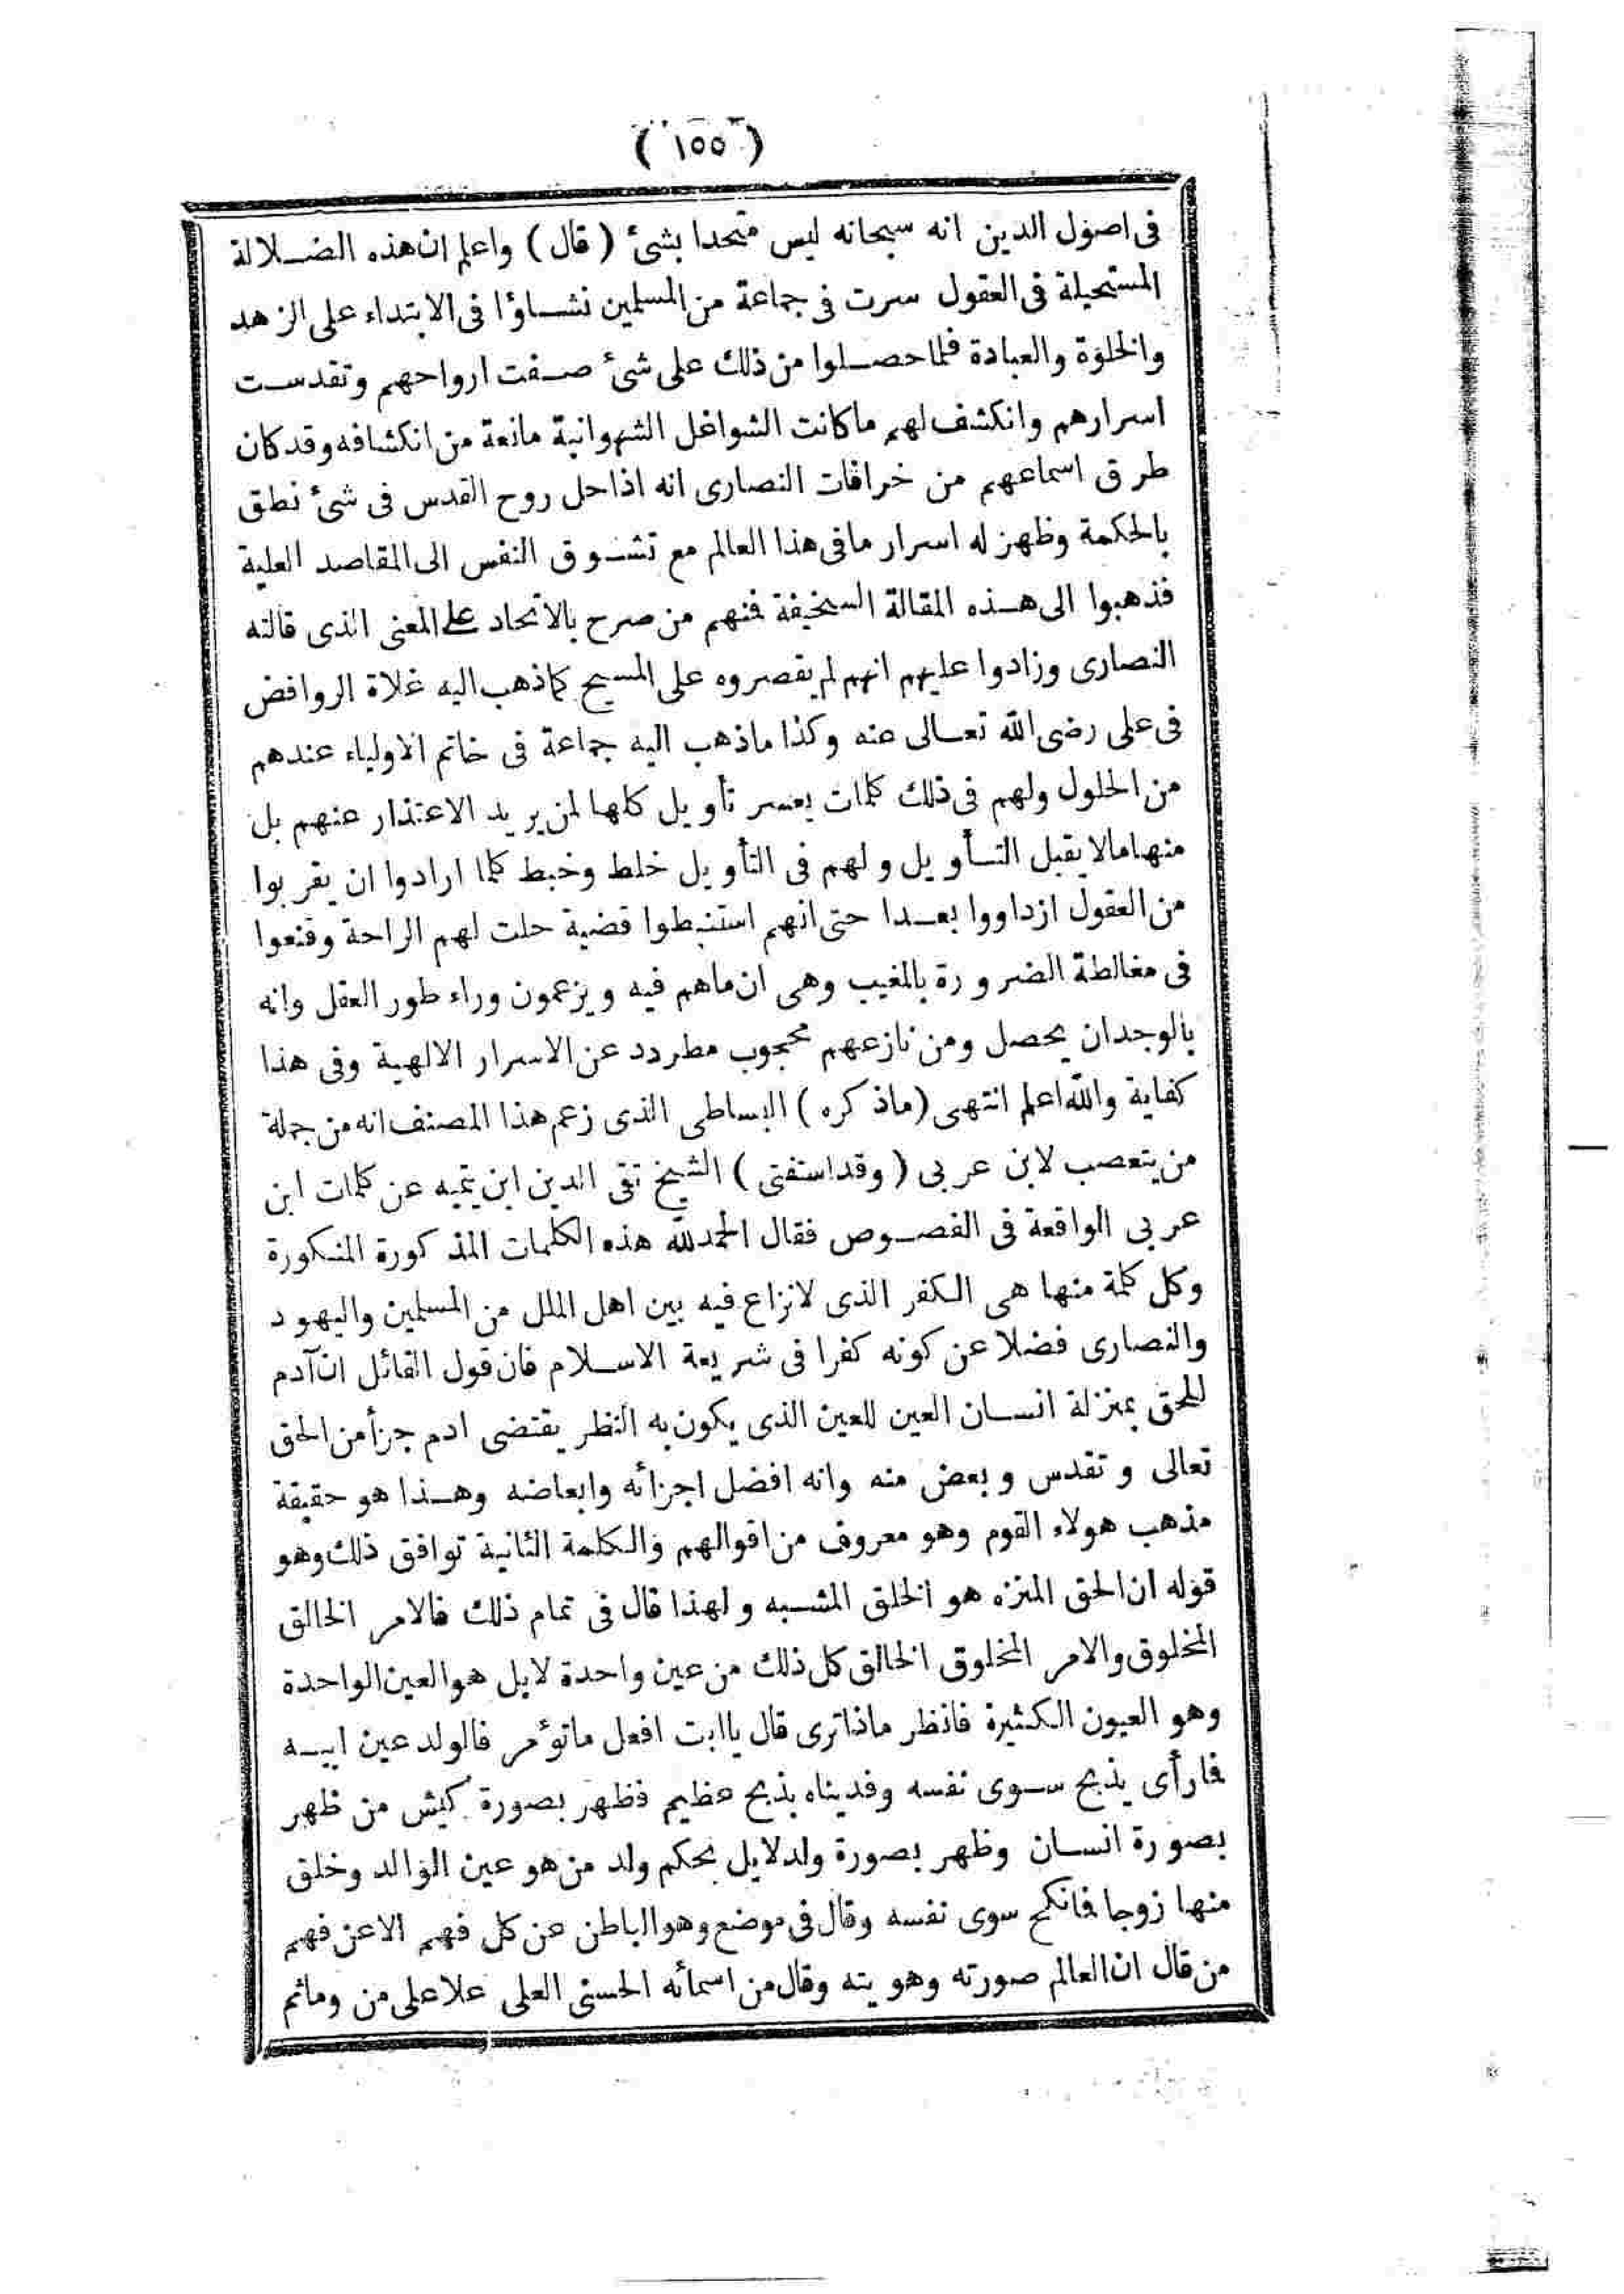 ( ١٥٥ )
فى اصول الدين انه سبحانه ليس متحدا بشئ ( قال ) واعلم ان هذه الضلالة
المستحيلة فى العقول سرت فى جماعة من المسلمين نشاؤا فى الابتداء على الزهد
والخلوة والعبادة فلما حصلوا من ذلك على شئ صفت ارواحهم وتقدست
اسرارهم وانكشف لهم ما كانت الشواغل الشهوانية مانعة من انكشافه وقد كان
طرق اسماعهم من خرافات النصارى انه اذا حل روح القدس فى شئ نطق
بالحكمة وظهر له اسرار ما فى هذا العالم مع تشوق النفس الى المقاصد العلية
فذهبوا الى هذه المقالة السخيفة فمنهم من صرح بالاتحاد على المعنى الذى قالته
النصارى وزادوا عليهم انهم لم يقصروه على المسيح كما ذهب اليه غلاة الروافض
فى على رضى الله تعالى عنه وكذا ما ذهب اليه جماعة فى خاتم الاولياء عندهم
من الحلول ولهم فى ذلك كلمات يعسر تأويل كلها لمن يريد الاعتذار عنهم بل
منها مالا يقبل التأويل ولهم فى التأويل خلط وخبط كلما ارادوا ان يقربوا
من العقول ازداووا بعدا حتى انهم استنبطوا قضية حلت لهم الراحة وقنعوا
فى مغالطة الضرورة بالمغيب وهى ان ماهم فيه ويزعمون وراء طور العقل وانه
بالوجدان يحصل ومن نازعهم محجوب مطردد عن الاسرار الالهية وفى هذا
كفاية والله اعلم انتهى ( ماذكره ) البساطى الذى زعم هذا المصنف انه من جملة
من يتعصب لابن عربى ( وقد استفتى ) الشيخ تقى الدين ابن تيميه عن كلمات ابن
عربى الواقعة فى الفصوص فقال الحمد لله هذه الكلمات المذكورة المنكورة
وكل كلمة منها هى الكفر الذى لا نزاع فيه بين اهل الملل من المسلمين واليهود
والنصارى فضلا عن كونه كفرا فى شريعة الاسلام فان قول القائل ان آدم
للحق بمنزلة انسان العين للعين الذى يكون به النظر يقتضى ادم جزأ من الحق
تعالى وتقدس وبعض منه وانه افضل اجزائه وابعاضه وهذا هو حقيقة
مذهب هولاء القوم وهو معروف من اقوالهم والكلمة الثانية توافق ذلك وهو
قوله ان الحق المنزه هو الخلق المشبه ولهذا قال فى تمام ذلك فالامر الخالق
المخلوق والامر المخلوق الخالق كل ذلك من عين واحدة لا بل هو العين الواحدة
وهو العيون الكثيرة فانظر ماذا ترى قال يا ابت افعل ما تؤمر فالولد عين ابيه
فا رأى يذبح سوى نفسه وفديناه بذبح عظيم فظهر بصورة كبش من ظهر
بصورة انسان وظهر بصورة ولد لا بل بحكم ولد من هو عين الوالد وخلق
منها زوجا فا نكح سوى نفسه وقال فى موضع وهو الباطن عن كل فهم الا عن فهم
من قال ان العالم صورته وهويته وقال من اسمائه الحسنى العلى علا على من وما ثم